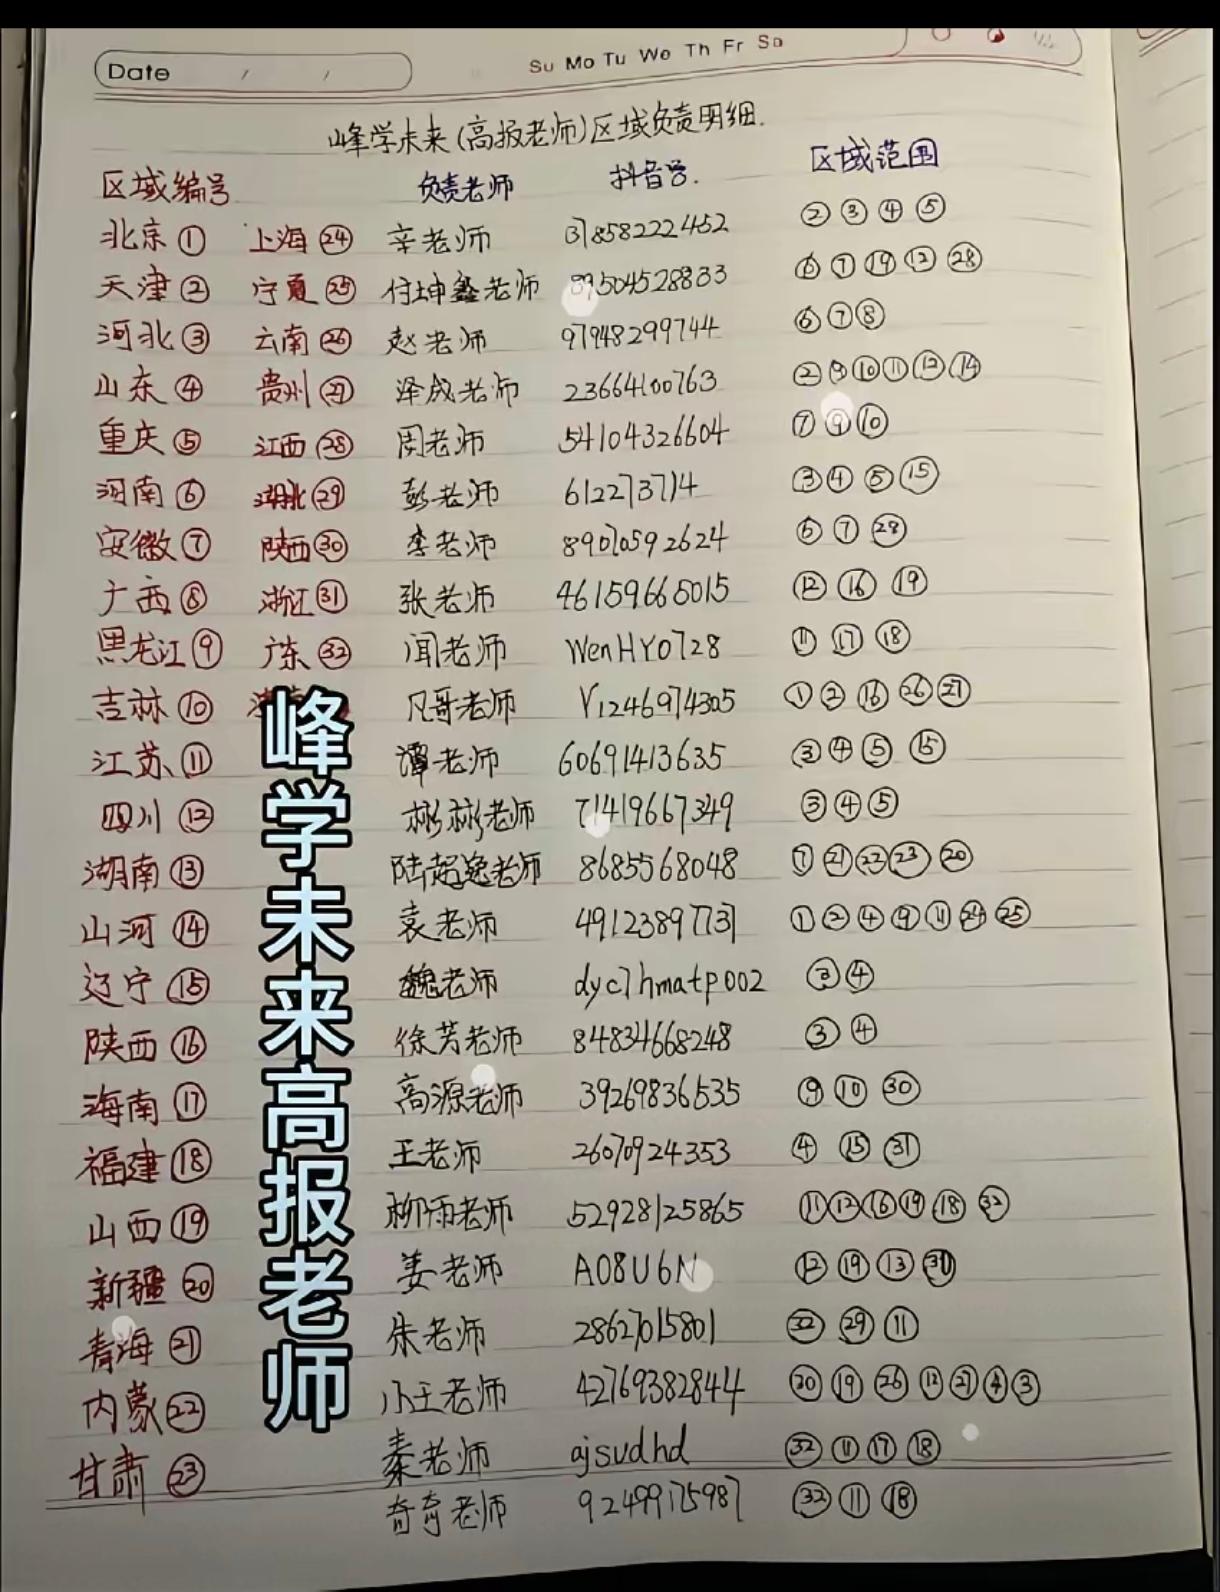 Date / /
Su Mo Tu We Th Fr Sa
峰学未来(高报老师)区域负责明细.
区域编号 负责老师 抖音号. 区域范围
北京① 上海㉔ 辛老师 31858222452 ②③④⑤
天津② 宁夏㉕ 付坤鑫老师 89504528833 ⑥⑦⑲⑫㉘
河北③ 云南㉖ 赵老师 97948299744 ⑥⑦⑧
山东④ 贵州㉗ 泽成老师 23664100763 ②⑨⑩⑪⑫⑭
重庆⑤ 江西㉘ 周老师 54104326604 ⑦⑨⑩
河南⑥ 湖北㉙ 彭老师 612273714 ③④⑤⑮
安徽⑦ 陕西㉚ 李老师 89070592624 ⑥⑦㉘
广西⑧ 浙江㉛ 张老师 46159665015 ⑫⑯⑲
黑龙江⑨ 广东㉜ 闻老师 WenHY0728 ⑪⑰⑱
吉林⑩ 凡哥老师 Y1246974305 ①②⑯㉖㉗
江苏⑪ 谭老师 60691413635 ③④⑤⑮
四川⑫ 彬彬老师 71419667349 ③④⑤
湖南⑬ 陆超逸老师 8685568048 ①㉑㉒㉓⑳
山河⑭ 袁老师 49123897731 ①②④⑨⑪㉔㉕
辽宁⑮ 魏老师 dyc7hmatp002 ③④
陕西⑯ 徐芳老师 84834668248 ③④
海南⑰ 高源老师 39269836535 ⑨⑩㉚
福建⑱ 王老师 26070924353 ④⑮㉛
山西⑲ 柳雨老师 52928125865 ⑪⑫⑯⑲⑱㉜
新疆⑳ 姜老师 A08U6N ⑫⑲⑬㉛
青海㉑ 朱老师 28627015801 ㉜㉙⑪
内蒙㉒ 小王老师 42769382844 ⑳⑲㉖⑫㉗④③
甘肃㉓ 秦老师 ajsudhd ㉜⑪⑰⑱
奇奇老师 92499175987 ㉜⑪⑱
峰学未来高报老师